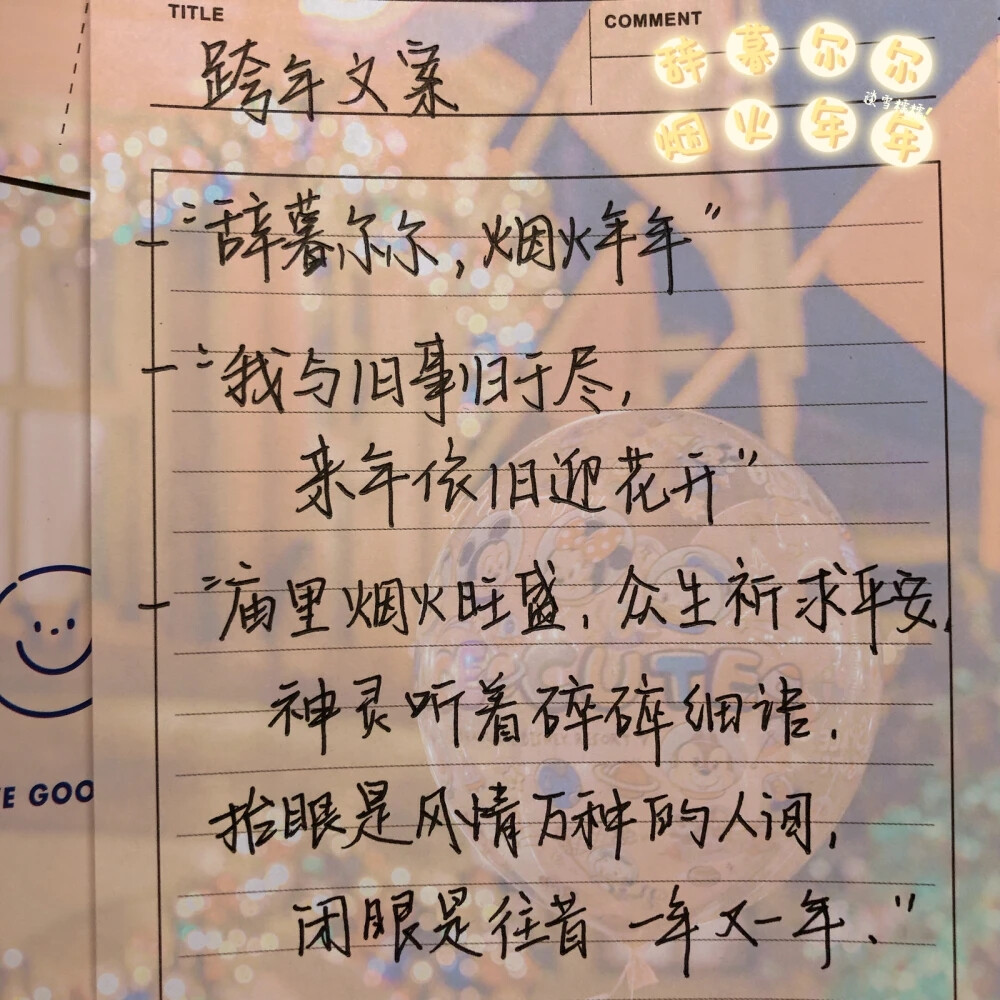 TITLE
COMMENT
跨年文案
辞暮尔尔
烟火年年
"辞暮尔尔，烟火年年"
"我与旧事归于尽，
来年依旧迎花开"
"庙里烟火旺盛，众生祈求平安，
神灵听着碎碎细语，
抬眼是风情万种的人间，
闭眼是往昔一年又一年."
E GOO
CUTE